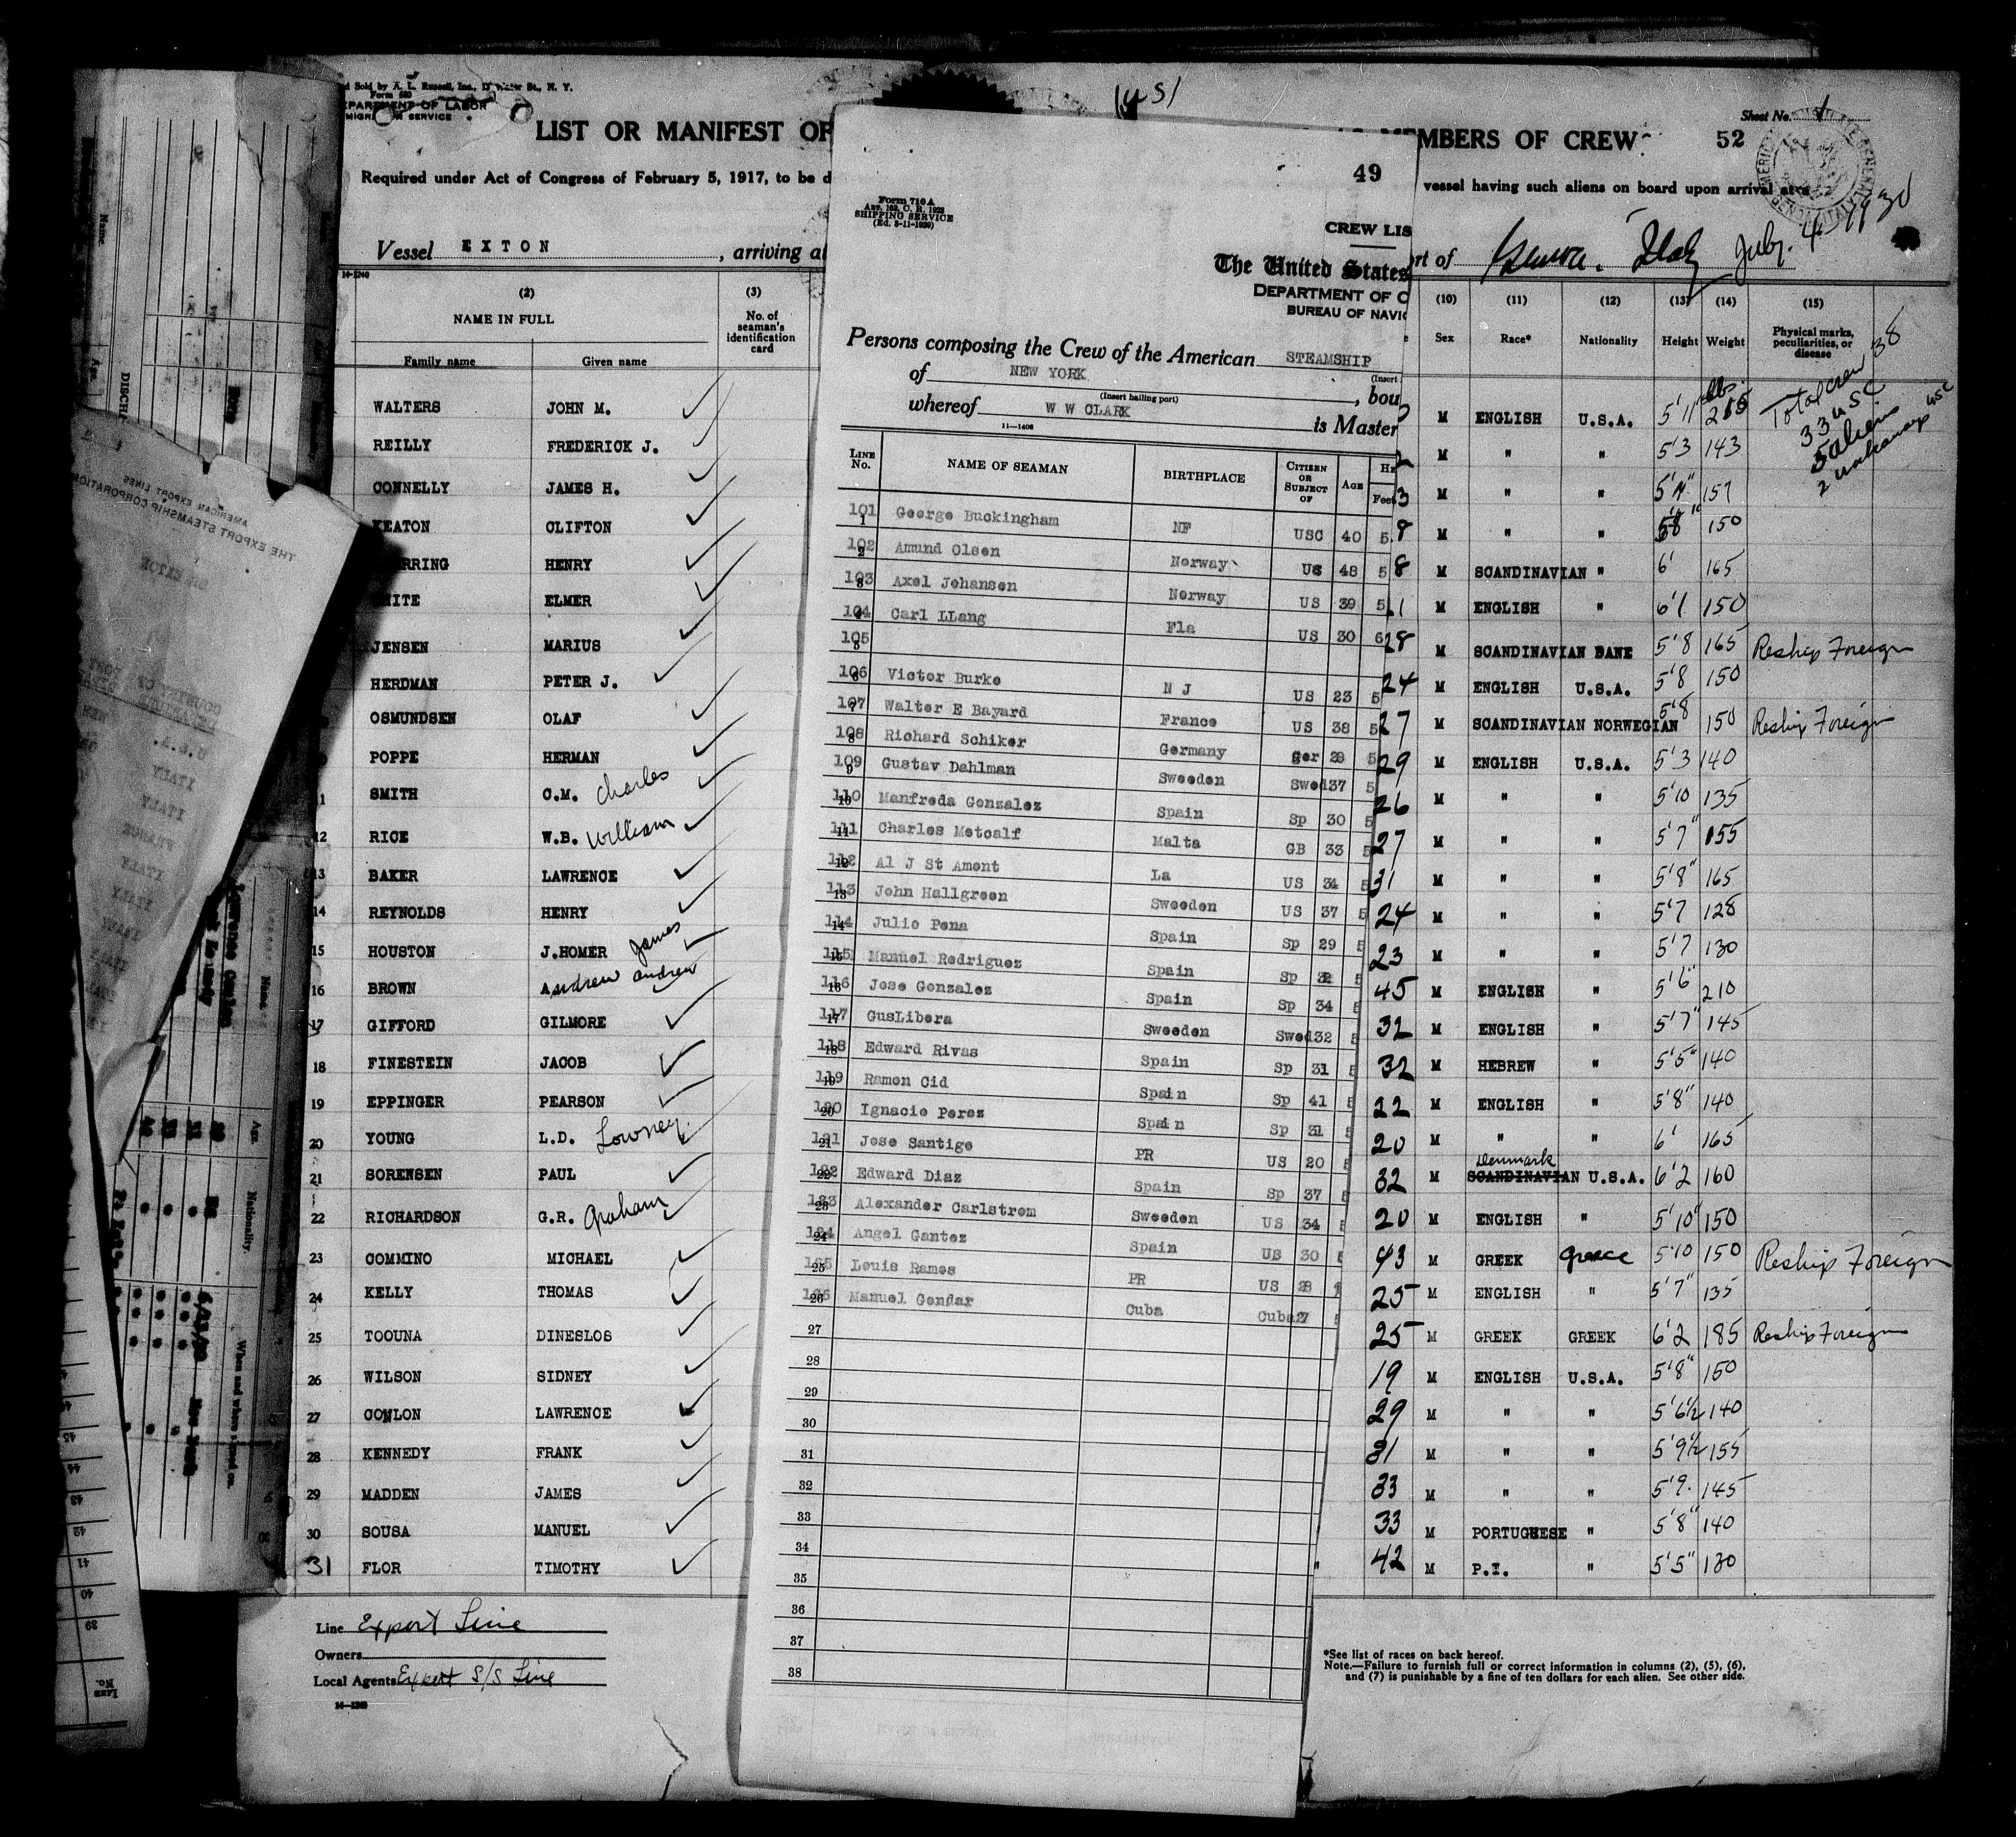 d Sold by A. L. Russell, Inc., Water St., N. Y.
Form 680
DEPARTMENT OF LABOR
SERVICE
LIST OR MANIFEST OF
Required under Act of Congress of February 5, 1917, to be d
Vessel EXTON, arriving at
14-1240
(2) (3)
NAME IN FULL
No. of seaman's identification card
Family name Given name
WALTERS JOHN M.
REILLY FREDERICK J.
CONNELLY JAMES H.
KEATON CLIFTON
RRING HENRY
ITE ELMER
JENSEN MARIUS
HERDMAN PETER J.
OSMUNDSEN OLAF
POPPE HERMAN
11 SMITH C.M. Charles
12 RICE W.B. William
13 BAKER LAWRENCE
14 REYNOLDS HENRY
15 HOUSTON J.HOMER James
16 BROWN Andrew Andrew
17 GIFFORD GILMORE
18 FINESTEIN JACOB
19 EPPINGER PEARSON
20 YOUNG L.D. Lowney
21 SORENSEN PAUL
22 RICHARDSON G.R. Graham
23 COMMINO MICHAEL
24 KELLY THOMAS
25 TOOUNA DINESLOS
26 WILSON SIDNEY
27 CONLON LAWRENCE
28 KENNEDY FRANK
29 MADDEN JAMES
30 SOUSA MANUEL
31 FLOR TIMOTHY
Line Export Line
Owners
Local Agents Export S/S Line
14-1240
49
Form 710 A
Art. 162, C. R. 1923
SHIPPING SERVICE
(Ed. 3-11-1930)
CREW LIS
The United States
DEPARTMENT OF C
BUREAU OF NAVI
Persons composing the Crew of the American STEAMSHIP
(Insert
of NEW YORK, bou
(Insert hailing port)
whereof W W CLARK is Master
11-1406
LINE No. NAME OF SEAMAN BIRTHPLACE CITIZEN OR SUBJECT OF AGE HE
Feet
101 1 George Buckingham NF USC 40 5
102 2 Amund Olsen Norway US 48 5
103 3 Axel Johansen Norway US 39 5
104 4 Carl LLang Fla US 30 6
105 5
106 6 Victor Burke N J US 23 5
107 7 Walter E Bayard France US 38 5
108 8 Richard Schiker Germany Ger 28 5
109 9 Gustav Dahlman Sweeden Swed37 5
110 10 Manfreda Gonzalez Spain Sp 30 5
111 11 Charles Metcalf Malta GB 33 5
112 12 Al J St Ament La US 34 5
113 13 John Hallgreen Sweeden US 37 5
114 14 Julio Pena Spain Sp 29 5
115 15 Manuel Redriguez Spain Sp 32 5
116 16 Jose Gonzalez Spain Sp 34 5
117 17 GusLibera Sweeden Swed32 5
118 18 Edward Rivas Spain Sp 31 5
119 19 Ramon Cid Spain Sp 41 5
120 20 Ignacio Perez Spain Sp 31 5
121 21 Jose Santigo PR US 20 5
122 22 Edward Diaz Spain Sp 37 5
123 23 Alexander Carlstrom Sweeden US 34 5
124 24 Angel Gantez Spain US 30 5
125 25 Louis Ramos PR US 28
126 26 Manuel Gondar Cuba Cuba27 5
27
28
29
30
31
32
33
34
35
36
37
38
Sheet No. 1
MEMBERS OF CREW 52
vessel having such aliens on board upon arrival at
rt of Genoa, Italy July 4, 1930
(10) (11) (12) (13) (14) (15)
Sex Race* Nationality Height Weight Physical marks, peculiarities, or disease
Total crew 38
33 USC
5 aliens
M ENGLISH U.S.A. 5'11" lbs.
M " " 5'3 143
3 M " " 157
8 M " " 5'8" 150
8 M SCANDINAVIAN " 6' 165
1 M ENGLISH " 6'1 150
28 M SCANDINAVIAN DANE 5'8 165 Reship Foreign
24 M ENGLISH U.S.A. 5'8 150
27 M SCANDINAVIAN NORWEGIAN 5'8 150 Reship Foreign
29 M ENGLISH U.S.A. 5'3 140
26 M " " 5'10 135
27 M " " 5'7" 155
31 M " " 5'8" 165
24 M " " 5'7 128
23 M " " 5'7 130
45 M ENGLISH " 5'6" 210
32 M ENGLISH " 5'7" 145
32 M HEBREW " 5'5" 140
22 M ENGLISH " 5'8" 140
20 M " " 6' 165
Denmark
32 M SCANDINAVIAN U.S.A. 6'2 160
20 M ENGLISH " 5'10" 150
43 M GREEK Greece 5'10 150 Reship Foreign
25 M ENGLISH " 5'7" 135
25 M GREEK GREEK 6'2 185 Reship Foreign
19 M ENGLISH U.S.A. 5'8" 150
29 M " " 5'6½ 140
31 M " " 5'9½ 155
33 M " " 5'9 145
33 M PORTUGUESE " 5'8" 140
42 M P.I. " 5'5" 130
*See list of races on back hereof.
Note.—Failure to furnish full or correct information in columns (2), (5), (6),
and (7) is punishable by a fine of ten dollars for each alien. See other side.
THE EXPORT STEAMSHIP CORPORATION
AMERICAN EXPORT LINES
ITALY
ITALY
FRANCE
ITALY
ITALY
Name.
Age.
Nationality.
When and where signed on.